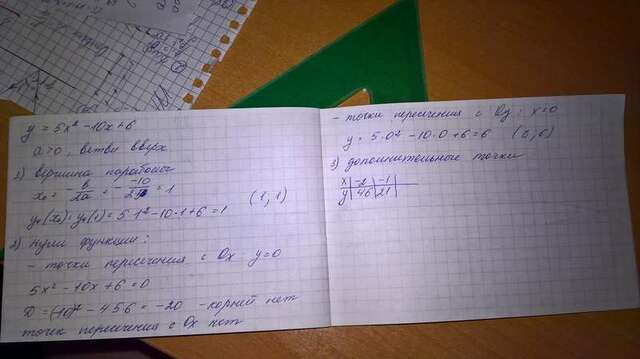 y = 5x² - 10x + 6
a > 0, ветви вверх
1) вершина параболы
x₀ = -b/2a = - -10/2·5 = 1
y₀(x₀) = y₀(1) = 5·1² - 10·1 + 6 = 1 (1, 1)
2) нули функции:
- точки пересечения с Ox y=0
5x² - 10x + 6 = 0
D = (-10)² - 4·5·6 = -20 - корней нет
точек пересечения с Ox нет
- точки пересечения с Oy: x=0
y = 5·0² - 10·0 + 6 = 6 (0, 6)
3) дополнительные точки
x | -2 | -1
y | 46 | 21